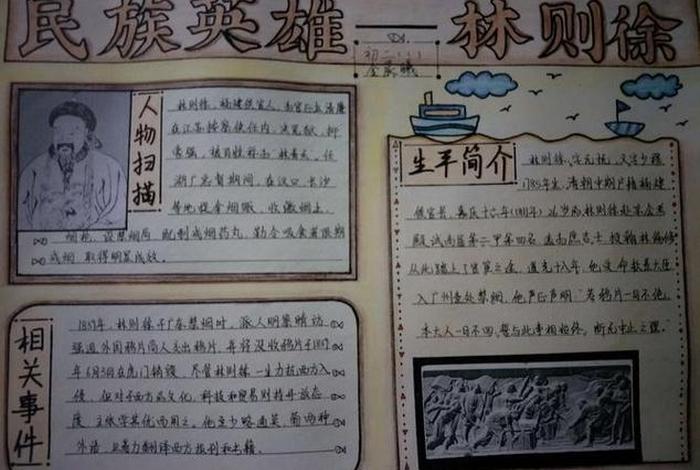 民族英雄——林则徐
初二
人物扫描
林则徐，福建侯官人，为官正直清廉
在江苏按察使任内，决冤狱，抑
豪强，被百姓称为"林青天，任
湖广总督期间，在汉口、长沙
等地捉拿烟贩，收缴烟土、
烟枪，设禁烟局，配制戒烟药丸，勒令吸食者限期
戒烟，取得明显成效。
生平简介
林则徐，字元抚，又字少穆
1785年生，清朝中期户籍福建
侯官县，嘉庆十六年(1811年)26岁的林则徐赴京会考
殿试高居第二甲第四名，选为庶吉士，授翰林编修
从此踏上了宦策之途，道光十八年，他受命钦差大臣
入广州查处禁烟，他严正声明："若鸦片一日不绝，
本大人一日不回，誓与此事相始终，断无中止之理"
相关事件
1839年，林则徐于广东禁烟时，派人明察暗访，
强迫外国鸦片商人交出鸦片，并将没收鸦片于1839
年6月3日在虎门销毁，尽管林则徐一生力抗西方入
侵，但对于西方的文化，科技和贸易则持开放态
度，主张学其优而用之。他至少略通英、葡两种
外语，且着力翻译西方报刊和书籍。